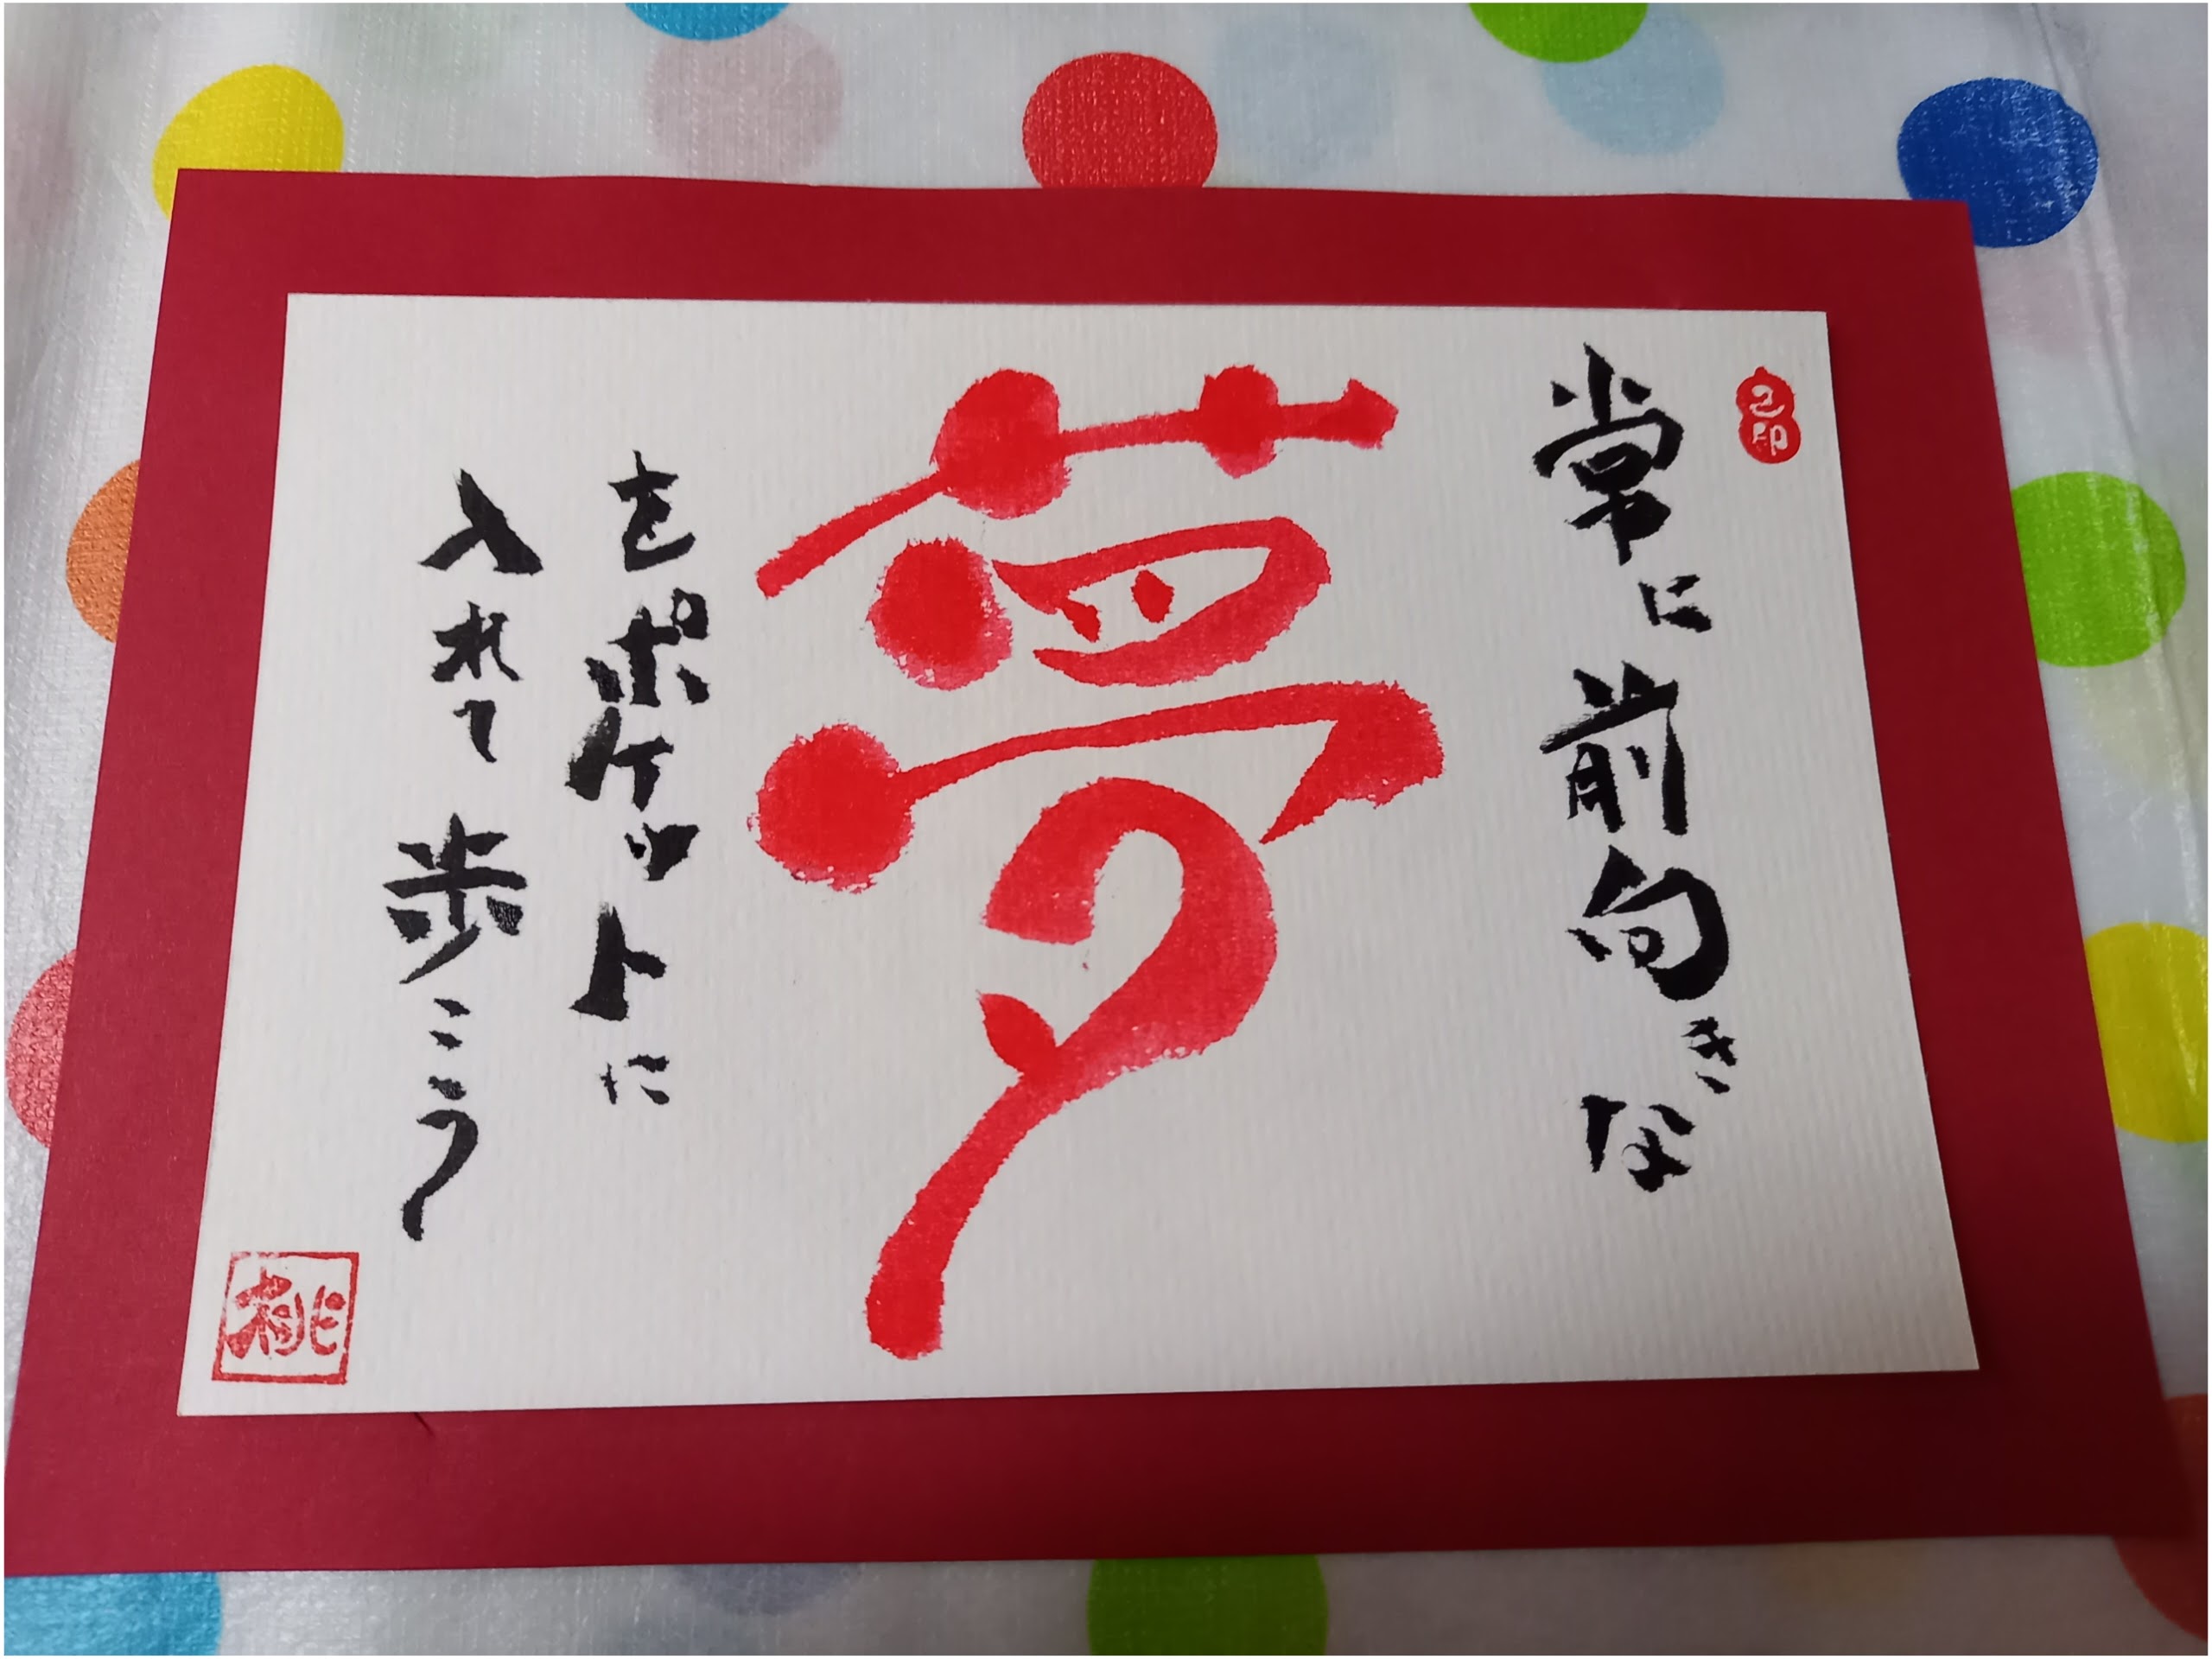 常に前向きな
夢
をポケットに
入れて歩こう
桃